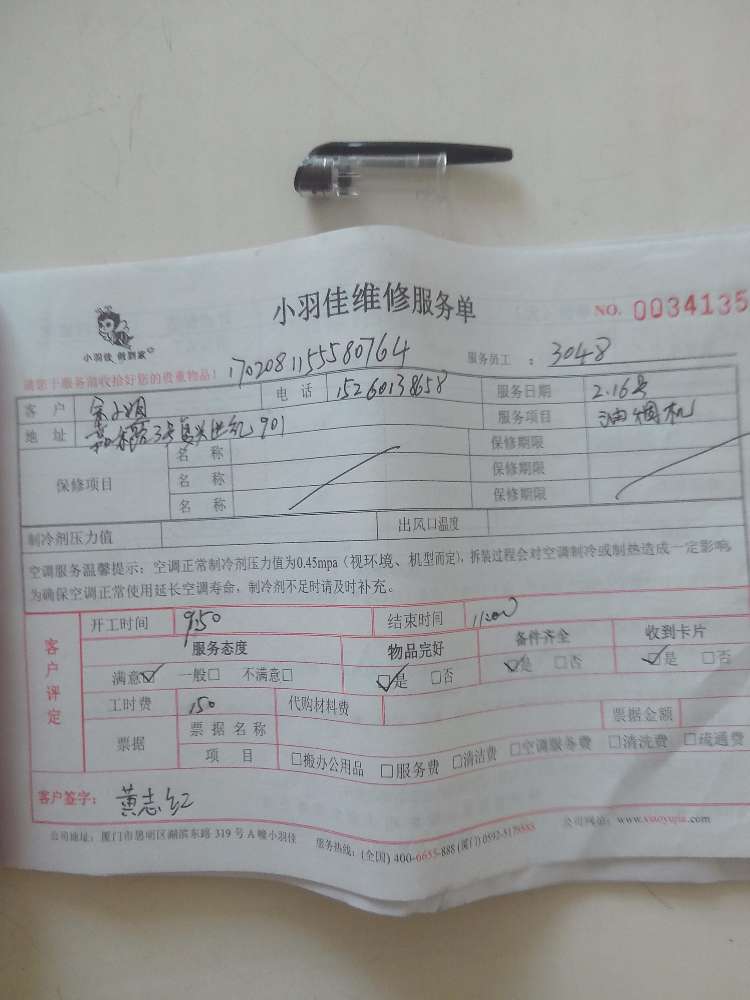 小羽佳维修服务单
NO. 0034135
小羽佳 倒到家
请您于服务前收拾好您的贵重物品!
1702081155580764
服务员工 : 3048
客 户 宋小姐 电 话 15260138658 服务日期 2.16号
地 址 3号 901 服务项目 油烟机
保修项目 名 称 保修期限
名 称 保修期限
名 称 保修期限
制冷剂压力值 出风口温度
空调服务温馨提示:空调正常制冷剂压力值为0.45mpa(视环境、机型而定),拆装过程会对空调制冷或制热造成一定影响,
为确保空调正常使用延长空调寿命,制冷剂不足时请及时补充。
客户评定
开工时间 9:50 结束时间 11:00
服务态度 物品完好 备件齐全 收到卡片
满意☑ 一般□ 不满意□ ☑是 □否 ☑是 □否 ☑是 □否
工时费 150 代购材料费
票据 票 据 名 称 票据金额
项 目 □搬办公用品 □服务费 □清洁费 □空调服务费 □清洗费 □疏通费
客户签字: 黄志红
公司地址:厦门市思明区湖滨东路 319 号 A 幢小羽佳 服务热线:(全国) 400-6655-888 (厦门) 0592-5178888 公司网站:www.xiaoyujia.com